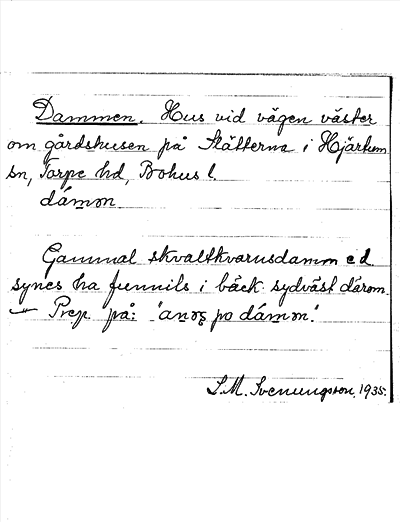 Dammen. Hus vid vägen väster
om gårdshusen på Slätterna i Hjärtum
sn, Torpe hd, Bohus l.
dámən
Gammal skvaltkvarnsdamm
synes ha funnits i bäck sydväst därom.
Prep. på: po dámən".
S.M. Svenungsson, 1935.